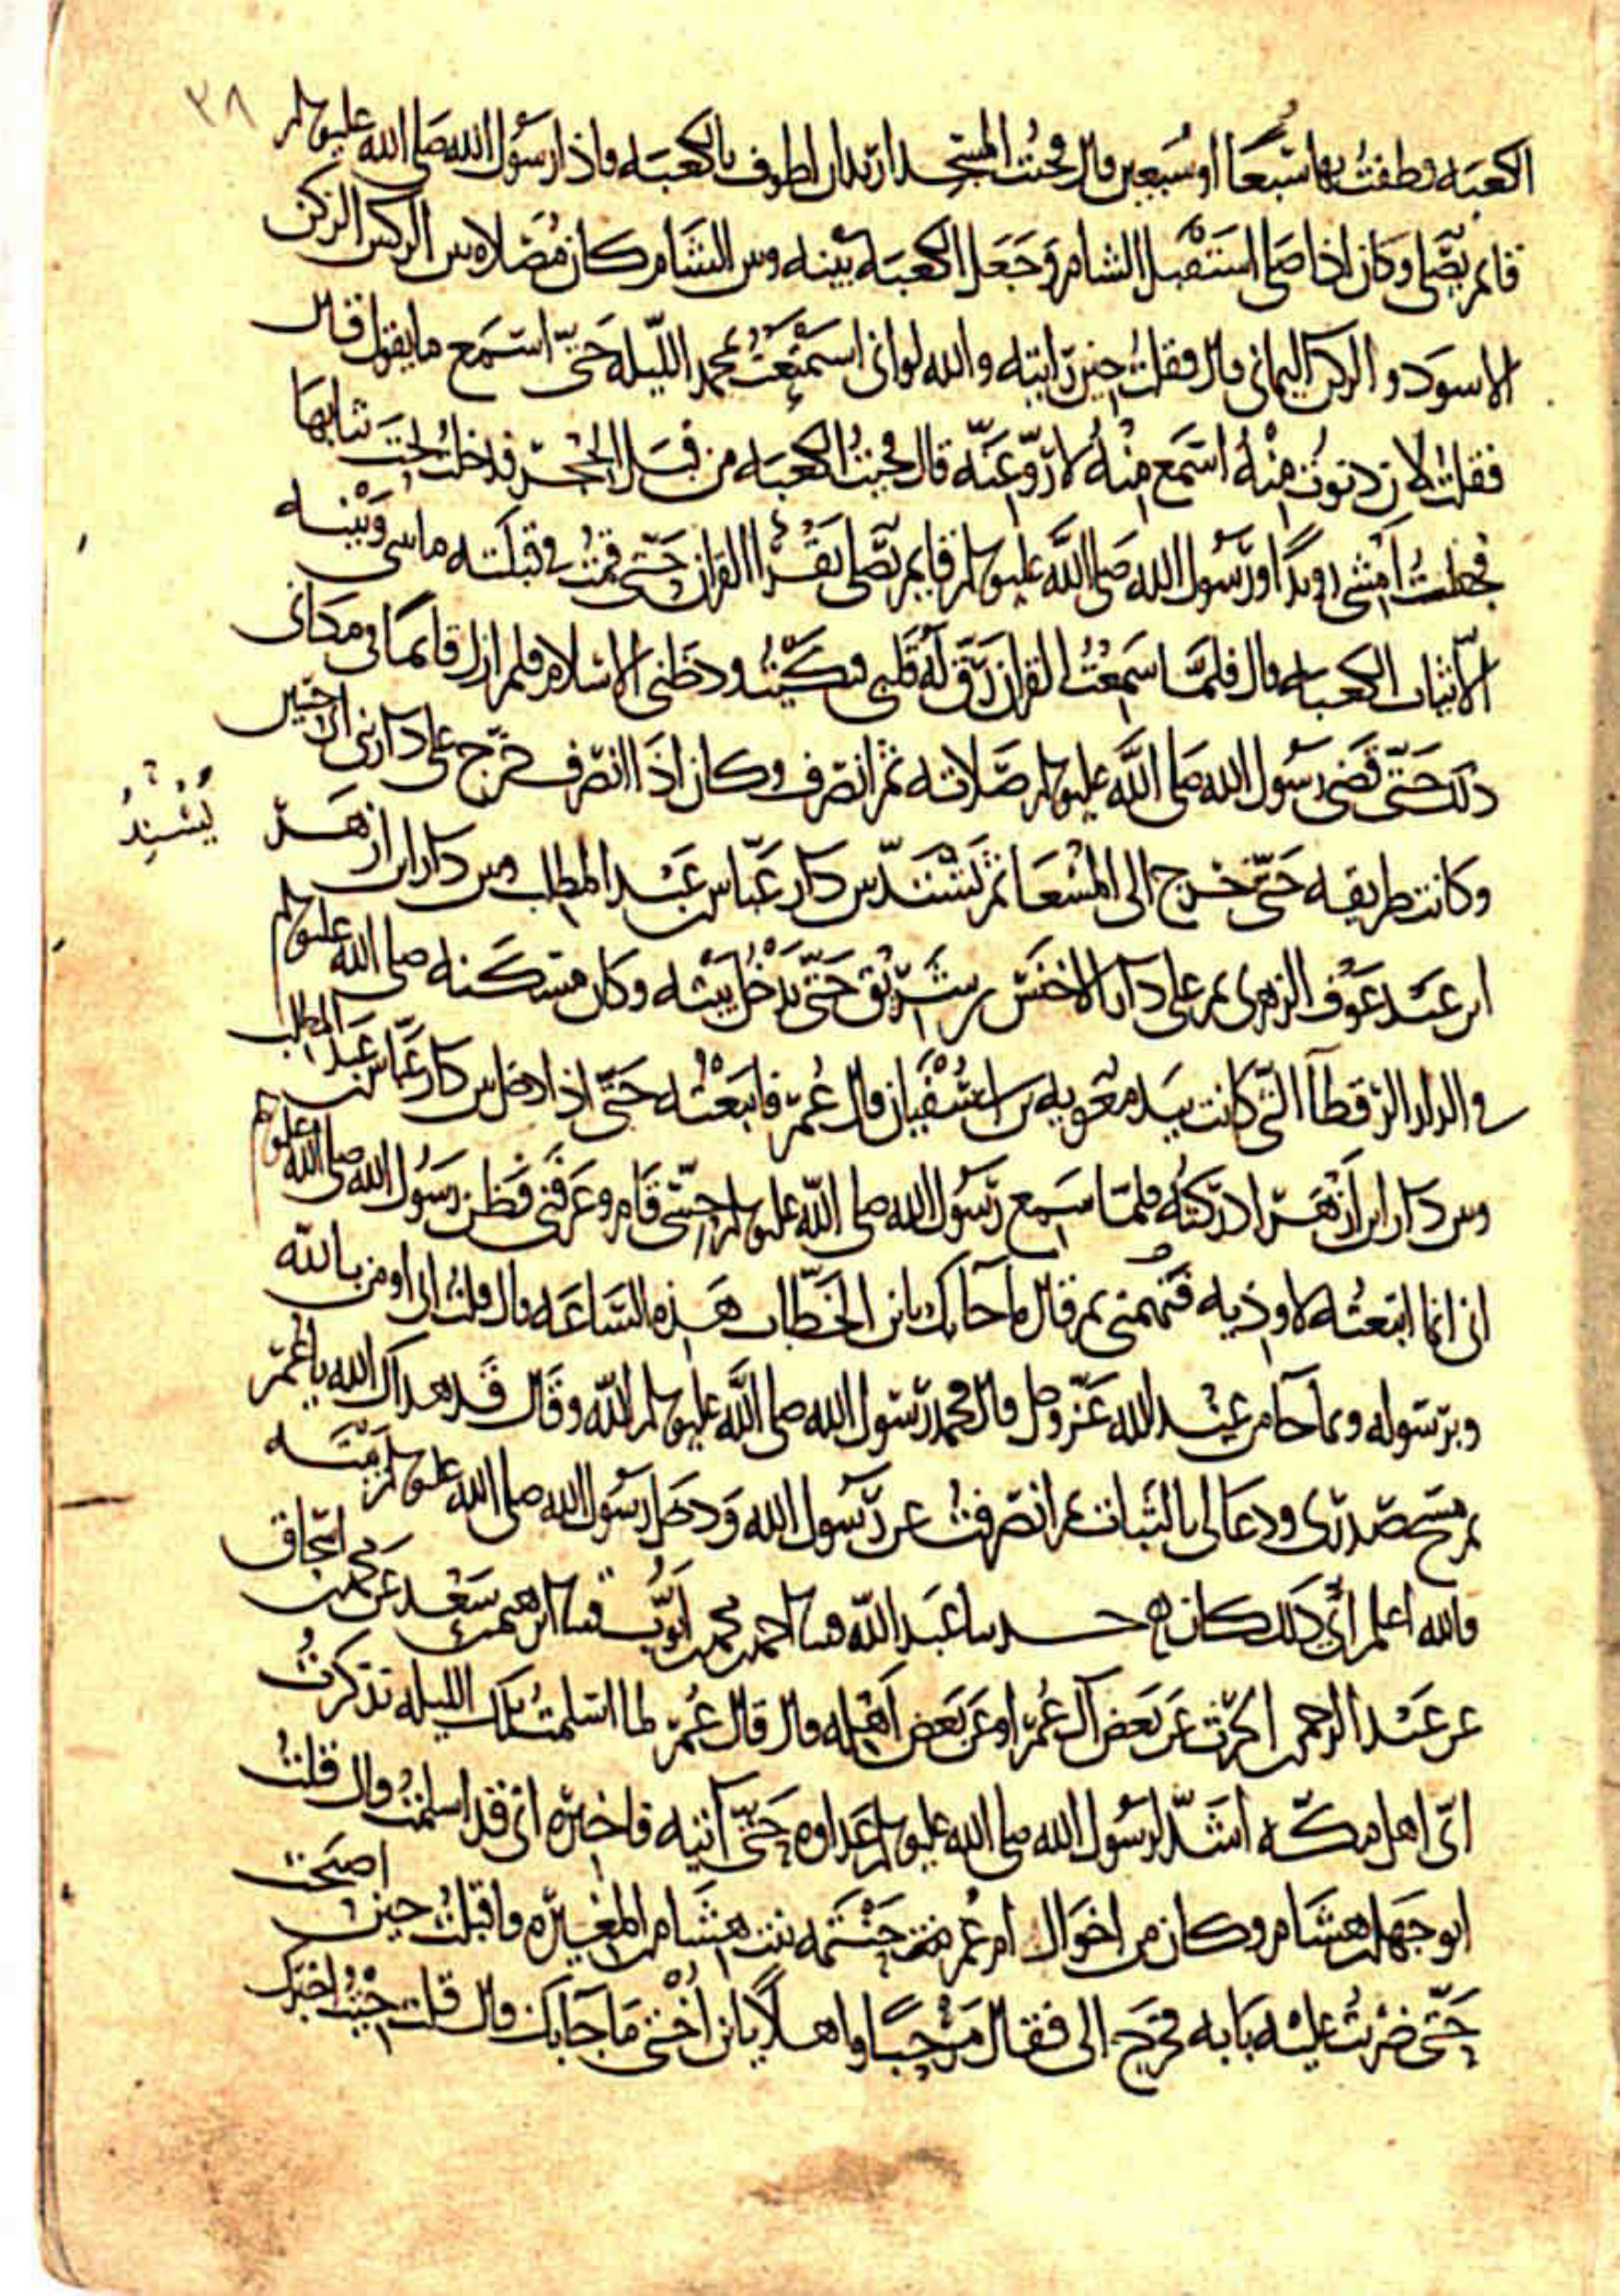 ٣٨
الكعبه فطفت بها سبعا او سبعين قال فجئت المسجد اريد ان اطوف بالكعبه واذا رسول الله صلى الله عليه وسلم
قائم يصلى وكان اذا صلى استقبل الشام وجعل الكعبه بينه وبين الشام كان مصلاه بين الركنين الركن
الاسود والركن اليمانى قال فقلت حين رايته والله لو انى استمعت محمد الليله حتى استمع ما يقول قال
فقلت لان دنوت منه استمع منه لاروعنه قال فجئت الكعبه من قبل الحجر فدخلت تحت ثيابها
فجعلت امشى رويدا ورسول الله صلى الله عليه وسلم قايم يصلى يقرا القران حتى قمت فى قبلته ما بينى وبينه
الا ثياب الكعبه قال فلما سمعت القران رق له قلبى فبكيت ودخلنى الاسلام فلم ازل قائما فى مكانى
ذلك حتى قضى رسول الله صلى الله عليه وسلم صلاته ثم انصرف وكان اذا انصرف خرج على دار بنى ابى حسين
يُسْنِدُ
وكانت طريقه حتى خرج الى المسعا ثم يشتد بين دار عباس بن عبد المطلب وبين دار ابن ازهر
ابن عبد عوف الزهرى ثم على دار الاخنس بن شريق حتى يدخل بيته وكان مسكنه صلى الله عليه وسلم
فى الدار الرقطا التى كانت بيد معويه بن ابى سفيان قال عمر فاتبعته حتى اذا دخل بين دار عباس بن عبد المطلب
وبين دار ابن ازهر ادركته فلما سمع رسول الله صلى الله عليه وسلم حسى قام وعرفنى فظن رسول الله صلى الله عليه وسلم
انى انما اتبعته لاوذيه فنهمنى ثم قال ما جا بك يابن الخطاب هذه الساعه قال قلت ان اومن بالله
وبرسوله وبما جا من عند الله عز وجل قال فحمد رسول الله صلى الله عليه وسلم الله وقال قد هداك الله يا عمر
ثم مسح صدرى ودعا لى بالثبات ثم انصرفت عن رسول الله ودخل رسول الله صلى الله عليه وسلم بيته
فالله اعلم اى ذلك كان حدثنا عبد الله قثنا احمد بن محمد بن ايوب قثنا ابرهيم بن سعد عن محمد بن اسحاق
عن عبد الرحمن بن الحرث عن بعض آل عمر او عن بعض اهله قال قال عمر لما اسلمت تلك الليله تذكرت
اى اهل مكه اشد لرسول الله صلى الله عليه وسلم عداوه حتى آتيه فاخبره انى قد اسلمت قال قلت
ابو جهل بن هشام وكان من اخوال ام عمر حنتمه بنت هشام بن المغيره فاقبلت حين اصبحت
حتى ضربت عليه بابه فخرج الى فقال مرحبا واهلا يابن اختى ما جا بك قال قلت جيت اخبرك